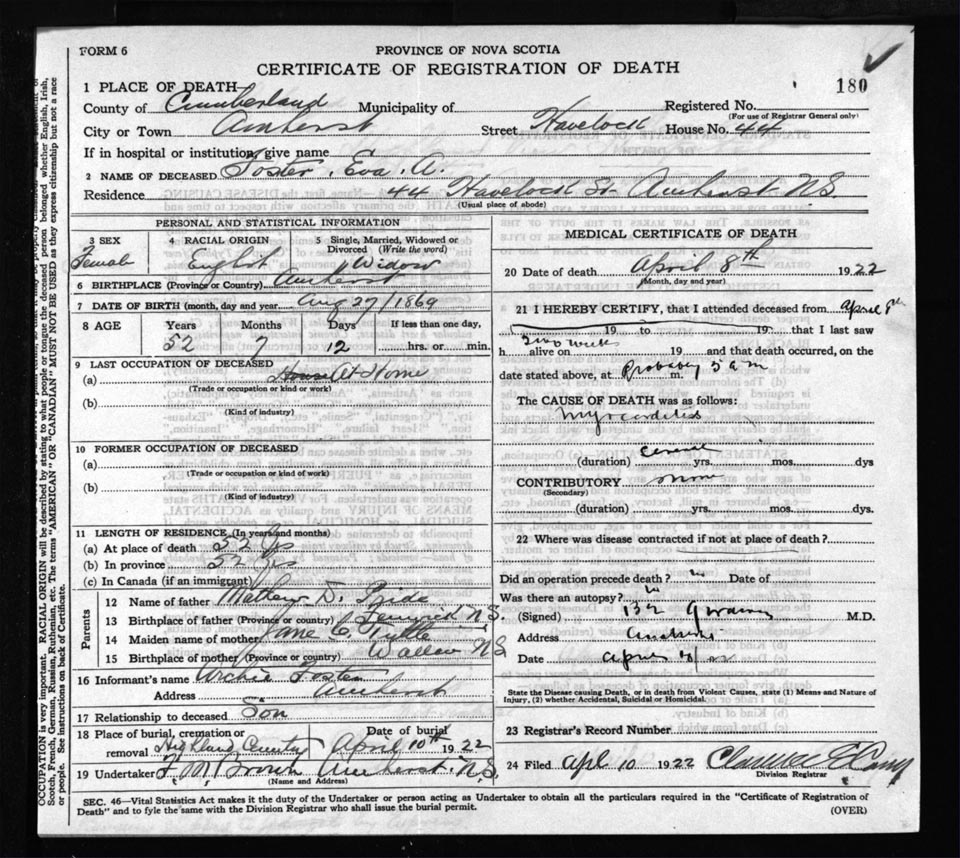 FORM 6
PROVINCE OF NOVA SCOTIA
CERTIFICATE OF REGISTRATION OF DEATH
180
1 PLACE OF DEATH
County of Cumberland Municipality of Registered No.
(For use of Registrar General only)
City or Town Amherst Street Havelock House No. 44
If in hospital or institution, give name
2 NAME OF DECEASED Foster, Eva. A.
Residence 44 Havelock St Amherst N.S.
(Usual place of abode)
PERSONAL AND STATISTICAL INFORMATION
3 SEX 4 RACIAL ORIGIN 5 Single, Married, Widowed or Divorced (Write the word)
Female English Widow
6 BIRTHPLACE (Province or Country) Amherst
7 DATE OF BIRTH (month, day and year) Aug 27/1869
8 AGE Years Months Days If less than one day,
52 7 12 hrs. or min.
9 LAST OCCUPATION OF DECEASED
(a) At Home
(Trade or occupation or kind or work)
(b)
(Kind of industry)
10 FORMER OCCUPATION OF DECEASED
(a)
(Trade or occupation or kind of work)
(b)
(Kind of industry)
11 LENGTH OF RESIDENCE (In years and months)
(a) At place of death 52 Yrs
(b) In province 52 Yrs
(c) In Canada (if an immigrant)
Parents
12 Name of father D. Pride
13 Birthplace of father (Province or country) N.S.
14 Maiden name of mother Jane C.
15 Birthplace of mother (Province or country) N.S
16 Informant's name Archie Foster
Address Amherst
17 Relationship to deceased Son
18 Place of burial, cremation or removal Date of burial
Highland April 10th 1922
19 Undertaker F. M. Brown Amherst N.S.
(Name and Address)
MEDICAL CERTIFICATE OF DEATH
20 Date of death April 8th 1922
(Month, day and year)
21 I HEREBY CERTIFY, that I attended deceased from April 8th
19 to 19 that I last saw
two weeks
h alive on 19 and that death occurred, on the
date stated above, at Probably 5 a m m.
The CAUSE OF DEATH was as follows:
Myocarditis
(duration) yrs. mos. dys
CONTRIBUTORY none
(Secondary)
(duration) yrs. mos. dys.
22 Where was disease contracted if not at place of death?
Did an operation precede death? Date of
Was there an autopsy?
(Signed) M.D.
Address Amherst
Date April
State the Disease causing Death, or in death from Violent Causes, state (1) Means and Nature of
Injury, (2) whether Accidental, Suicidal or Homicidal.
23 Registrar's Record Number
24 Filed Apl 10 1922
Division Registrar
SEC. 46—Vital Statistics Act makes it the duty of the Undertaker or person acting as Undertaker to obtain all the particulars required in the "Certificate of Registration of
Death" and to fyle the same with the Division Registrar who shall issue the burial permit.
(OVER)
OCCUPATION is very important. RACIAL ORIGIN will be described by stating to what people or tongue the deceased person belonged whether English, Irish,
Scotch, French, German, Russian, Ruthenian, etc. The terms "AMERICAN" OR "CANADIAN" MUST NOT BE USED as they express citizenship but not a race
or people. See instructions on back of Certificate.